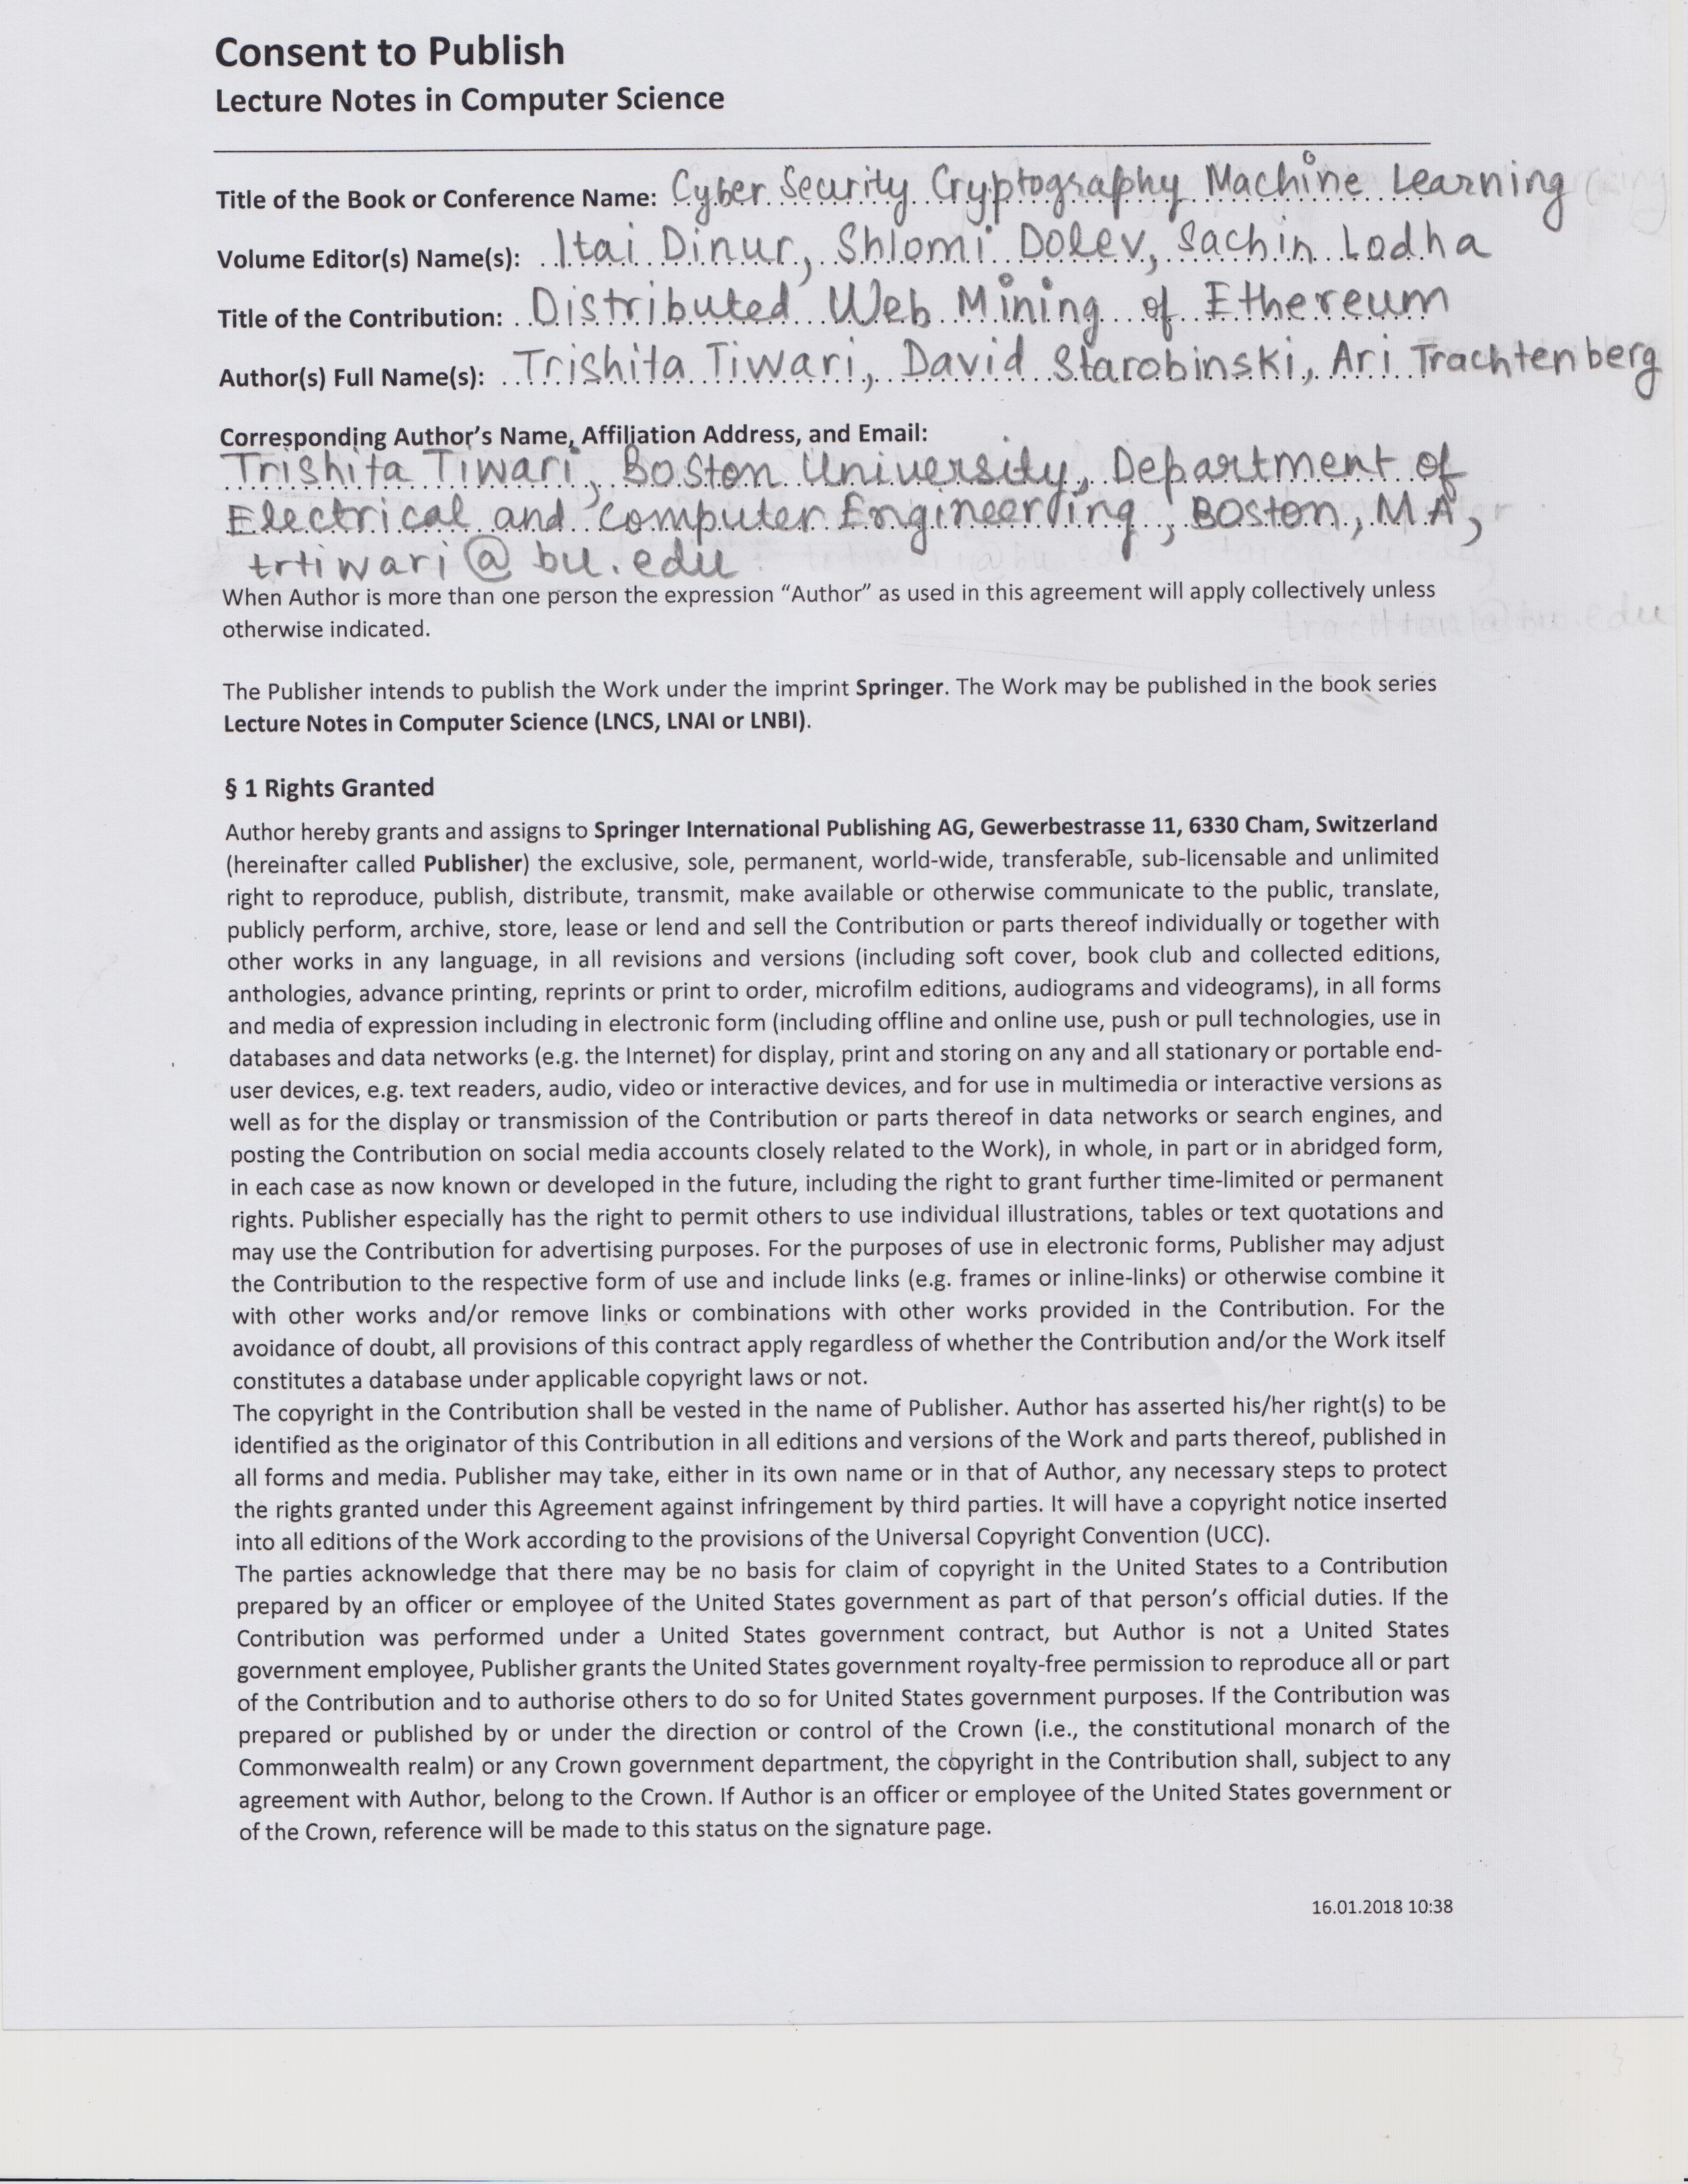 Consent to Publish
Lecture Notes in Computer Science
Title of the Book or Conference Name: Cyber Security Cryptography Machine Learning
Volume Editor(s) Name(s): Itai Dinur, Shlomi Dolev, Sachin Lodha
Title of the Contribution: Distributed Web Mining of Ethereum
Author(s) Full Name(s): Trishita Tiwari, David Starobinski, Ari Trachtenberg
Corresponding Author's Name, Affiliation Address, and Email:
Trishita Tiwari, Boston University, Department of
Electrical and Computer Engineering, Boston, MA,
trtiwari@bu.edu
When Author is more than one person the expression “Author” as used in this agreement will apply collectively unless
otherwise indicated.
The Publisher intends to publish the Work under the imprint Springer. The Work may be published in the book series
Lecture Notes in Computer Science (LNCS, LNAI or LNBI).
§ 1 Rights Granted
Author hereby grants and assigns to Springer International Publishing AG, Gewerbestrasse 11, 6330 Cham, Switzerland
(hereinafter called Publisher) the exclusive, sole, permanent, world-wide, transferable, sub-licensable and unlimited
right to reproduce, publish, distribute, transmit, make available or otherwise communicate to the public, translate,
publicly perform, archive, store, lease or lend and sell the Contribution or parts thereof individually or together with
other works in any language, in all revisions and versions (including soft cover, book club and collected editions,
anthologies, advance printing, reprints or print to order, microfilm editions, audiograms and videograms), in all forms
and media of expression including in electronic form (including offline and online use, push or pull technologies, use in
databases and data networks (e.g. the Internet) for display, print and storing on any and all stationary or portable end-
user devices, e.g. text readers, audio, video or interactive devices, and for use in multimedia or interactive versions as
well as for the display or transmission of the Contribution or parts thereof in data networks or search engines, and
posting the Contribution on social media accounts closely related to the Work), in whole, in part or in abridged form,
in each case as now known or developed in the future, including the right to grant further time-limited or permanent
rights. Publisher especially has the right to permit others to use individual illustrations, tables or text quotations and
may use the Contribution for advertising purposes. For the purposes of use in electronic forms, Publisher may adjust
the Contribution to the respective form of use and include links (e.g. frames or inline-links) or otherwise combine it
with other works and/or remove links or combinations with other works provided in the Contribution. For the
avoidance of doubt, all provisions of this contract apply regardless of whether the Contribution and/or the Work itself
constitutes a database under applicable copyright laws or not.
The copyright in the Contribution shall be vested in the name of Publisher. Author has asserted his/her right(s) to be
identified as the originator of this Contribution in all editions and versions of the Work and parts thereof, published in
all forms and media. Publisher may take, either in its own name or in that of Author, any necessary steps to protect
the rights granted under this Agreement against infringement by third parties. It will have a copyright notice inserted
into all editions of the Work according to the provisions of the Universal Copyright Convention (UCC).
The parties acknowledge that there may be no basis for claim of copyright in the United States to a Contribution
prepared by an officer or employee of the United States government as part of that person's official duties. If the
Contribution was performed under a United States government contract, but Author is not a United States
government employee, Publisher grants the United States government royalty-free permission to reproduce all or part
of the Contribution and to authorise others to do so for United States government purposes. If the Contribution was
prepared or published by or under the direction or control of the Crown (i.e., the constitutional monarch of the
Commonwealth realm) or any Crown government department, the copyright in the Contribution shall, subject to any
agreement with Author, belong to the Crown. If Author is an officer or employee of the United States government or
of the Crown, reference will be made to this status on the signature page.
16.01.2018 10:38